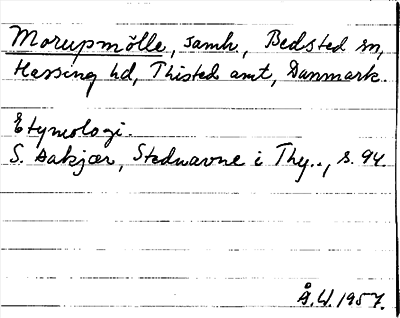 Morupmölle, samh., Bedsted sn,
Hassing hd, Thisted amt, Danmark.
Etymologi.
S. Aakjær, Stednavne i Thy.., s. 94.
Å.W. 1957.